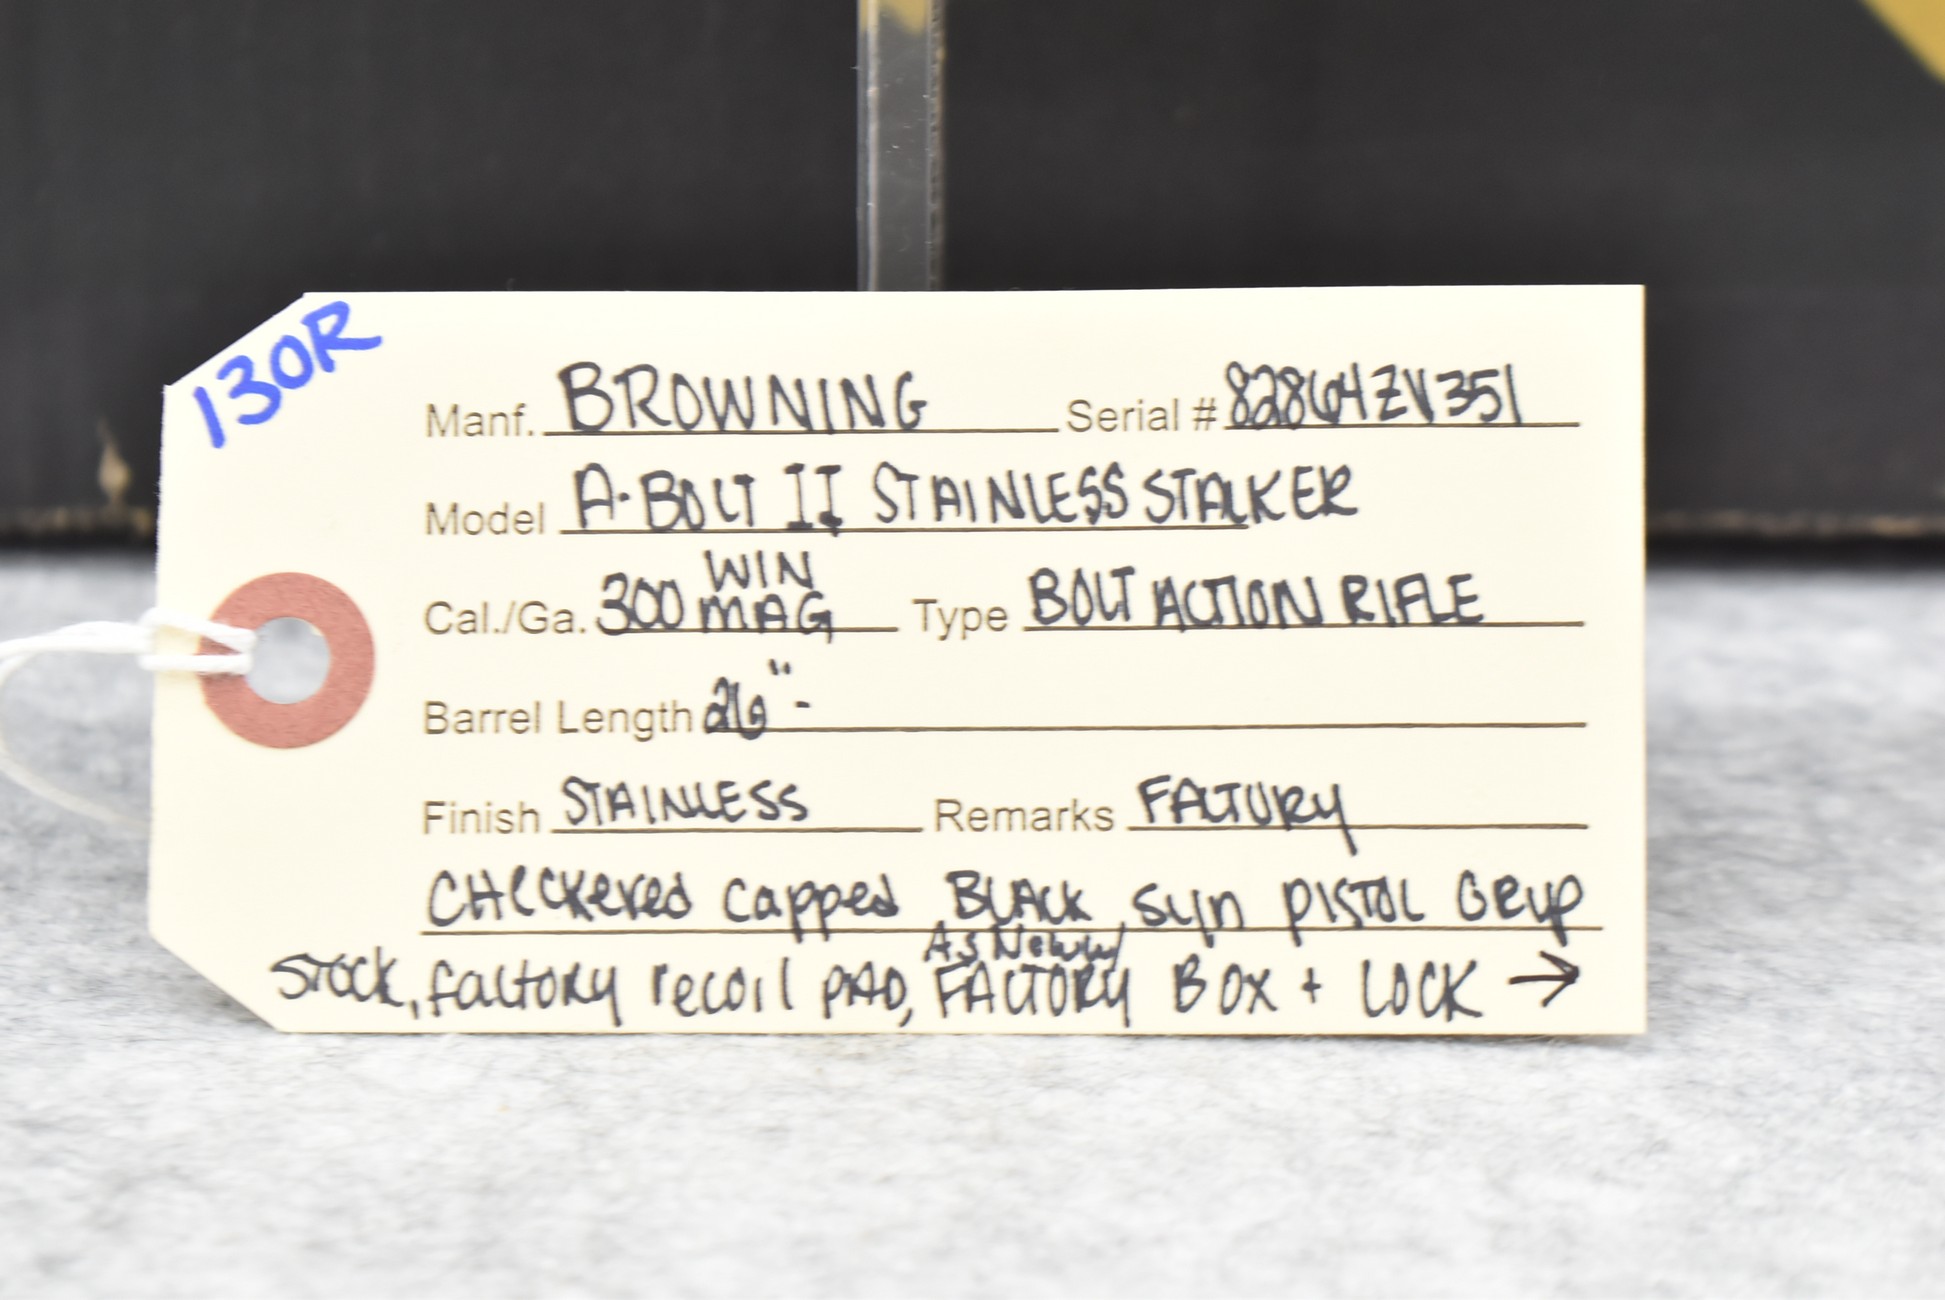 130R
Manf. BROWNING Serial # 82864ZV351
Model A-BOLT II STAINLESS STALKER
Cal./Ga. 300 WIN MAG Type BOLT ACTION RIFLE
Barrel Length 26" -
Finish STAINLESS Remarks FACTORY
CHECKered capped BLACK syn PISTOL GRIP
STOCK, factory recoil PAD, As New w/ FACTORY BOX + LOCK →